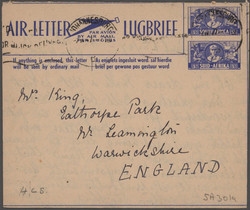 AIR-LETTER LUGBRIEF.
PAR AVION
BY AIR MAIL
If anything is enclosed, this letter
will be sent by ordinary mail
As enigiets ingesluit word sal hierdie
brief per gewone pos gestuur word
SUID-AFRIKA
Mr. King,
Eathorpe Park
Nr Leamington
Warwickshire
ENGLAND